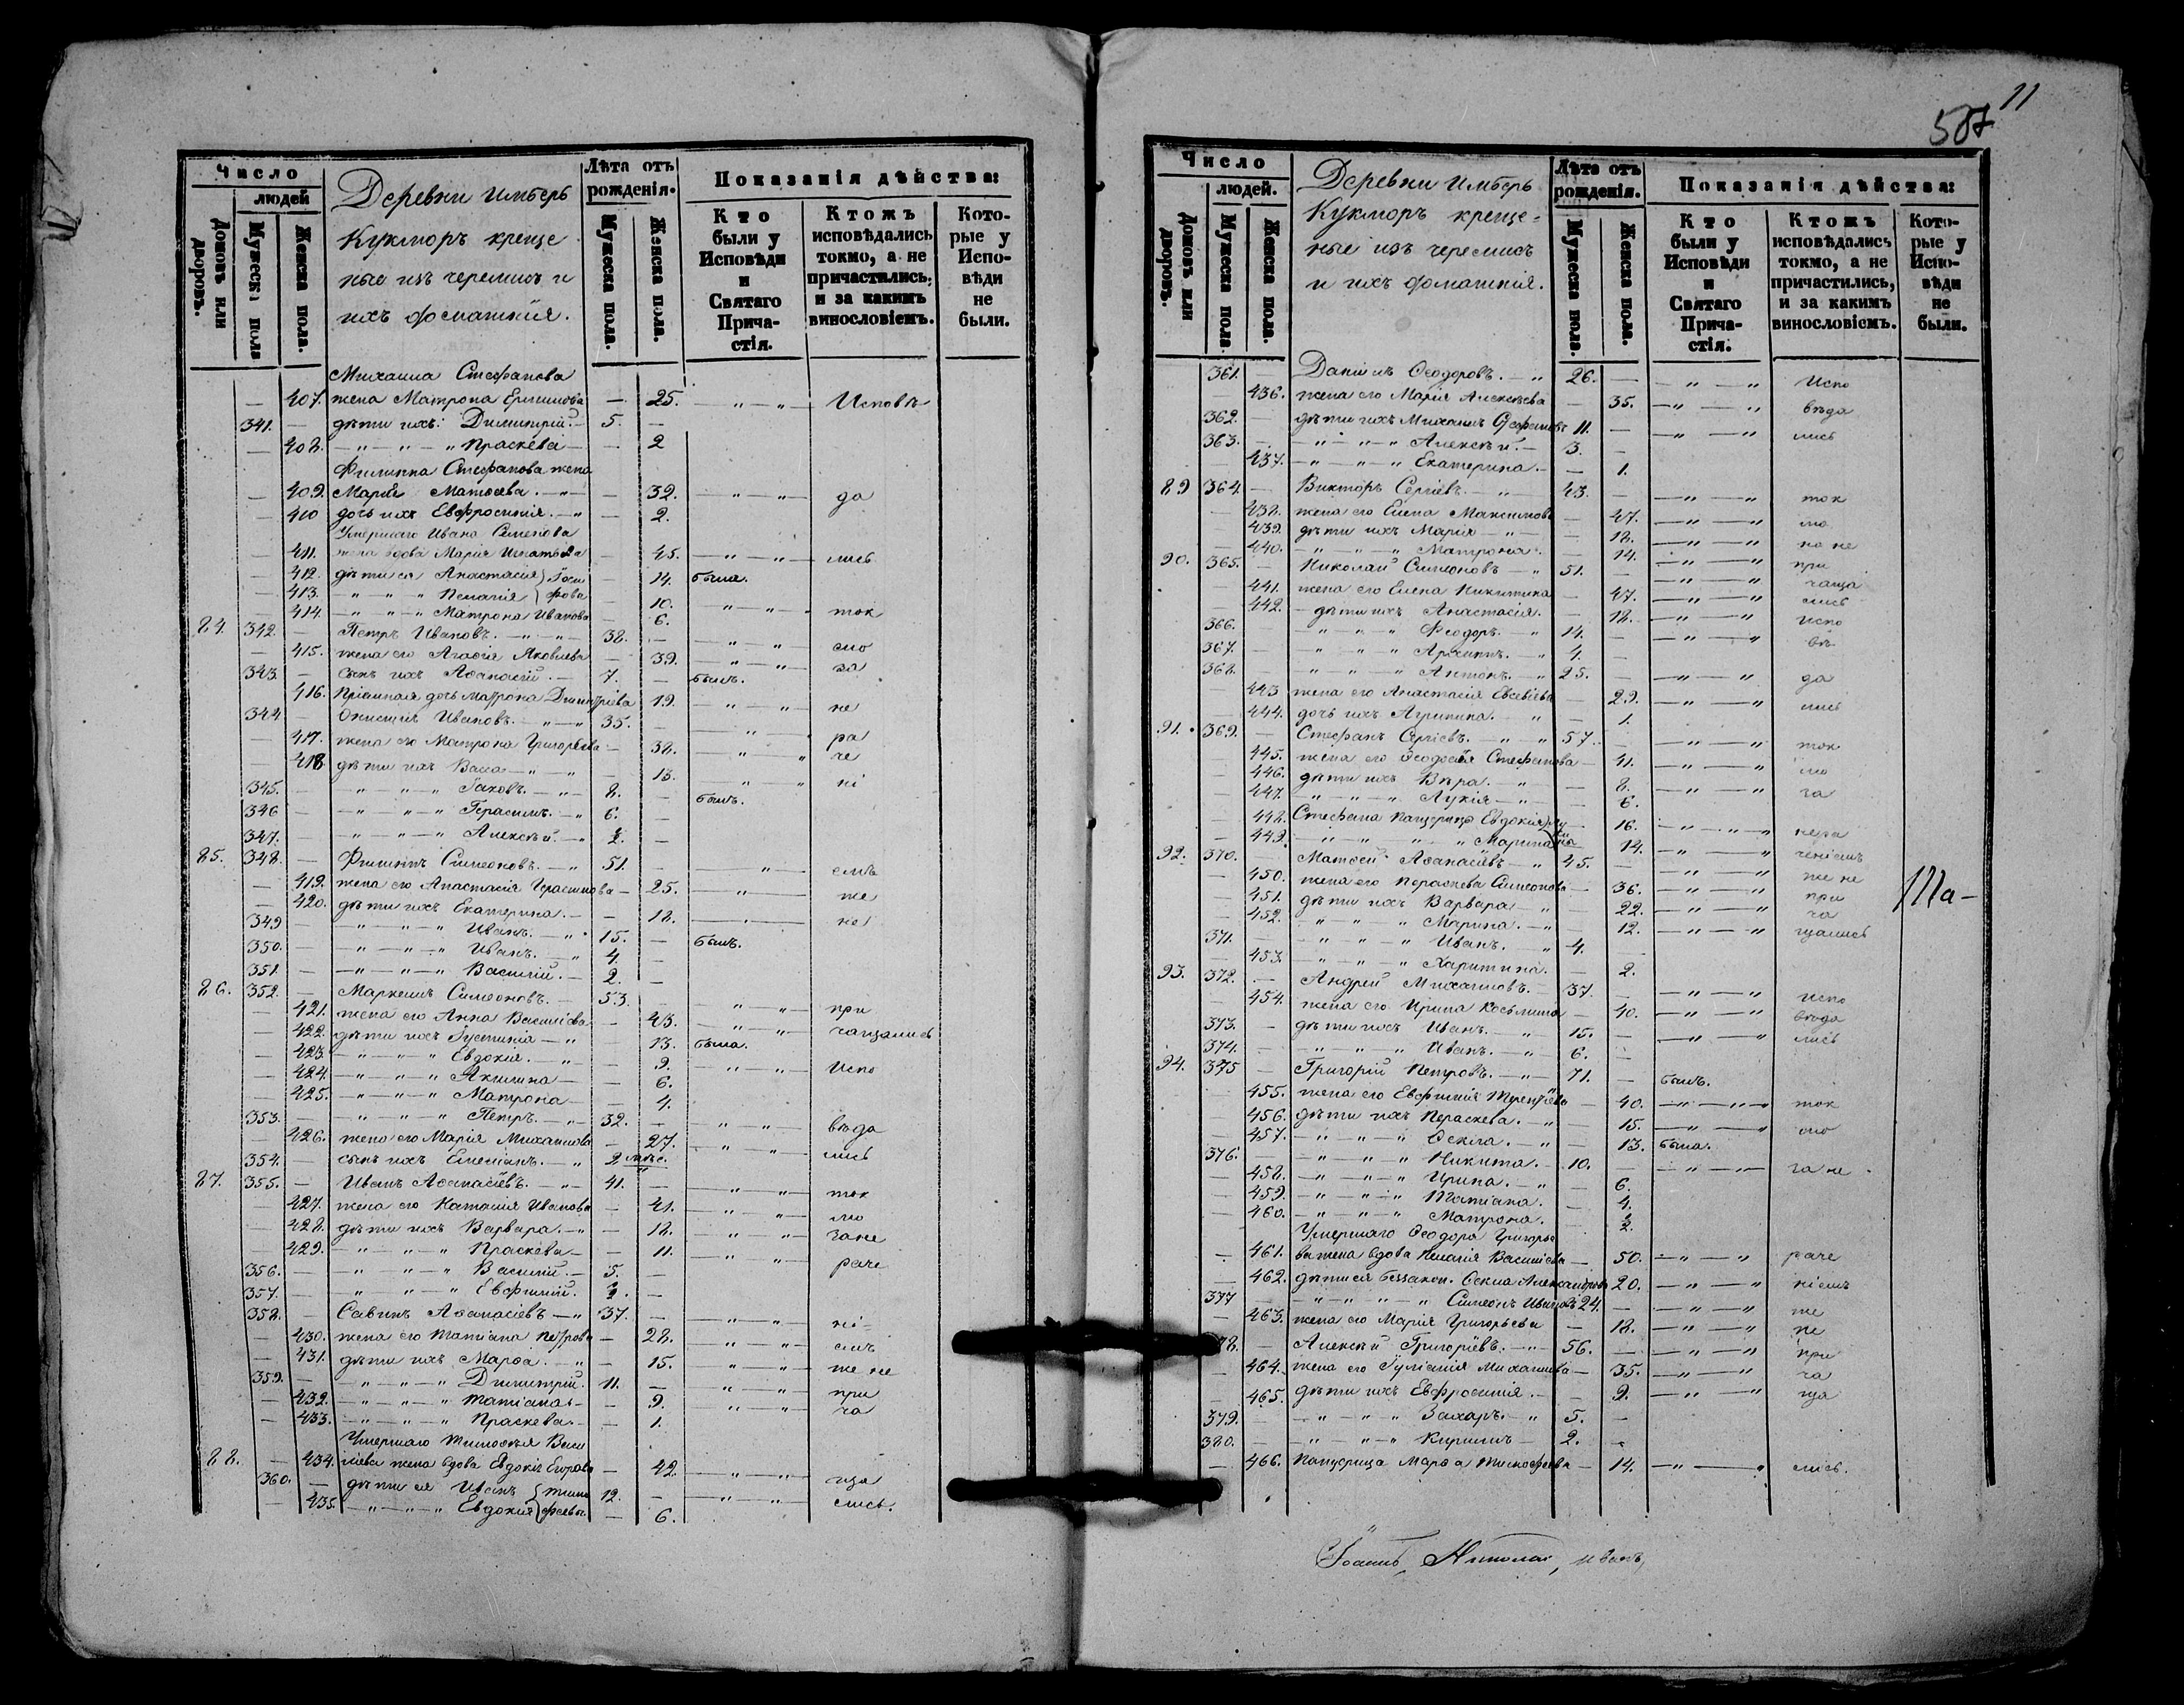 Число
людей
Домовъ или дворовъ.
Мужеска пола
Женска пола.
Деревни Имберь
Кукморъ креще
ные изъ черемисъ и
ихъ домашнія.
Лѣта отъ рожденія.
Мужеска пола.
Женска пола.
Показанія дѣйства:
Кто были у Исповѣди и Святаго Прича-стія.
Ктожъ исповѣдались токмо, а не причастились; и за какимъ винословіемъ.
Кото-рые у Испо-вѣди не были.
Михаила Стефанова
— 407. жена Матрона — 25. — „ — „ — Исповѣ
341. — дѣти ихъ: Димитрій. — 5. —
— 408. — „ — „ — „ Праскева — — 2
Филиппа Стефанова жена
— 409. Марія Матѳеева. — „ — — 32. — „ — „ — да
— 410 дочь ихъ Евфросинія. — „ — 2.
Умершаго Ивана Семенова
— 411. жена вдова Марія Игнатьева — 45. — „ — „ — лись
— 412. дѣти ея Анастасія } Іоси — 14. была.
— 413. — „ — „ — „ Пелагія } фова — 10. — „ — „ — ток
— 414. — „ — „ — „ Матрона Иванова — 6.
84. 342. — Петръ Ивановъ. — „ — „ — 38. — — „ — „ — мо
— 415. жена его Агафія Яковлева — 39. — „ — „ — за
343. — сынъ ихъ Аѳанасій. — 7. — былъ.
416. Пріемная дочь Матрона Димитріева 19. — „ — „ — не
344. — Онисимъ Ивановъ. — „ — „ 35. — — „ — ра
— 417. жена его Матрона Григорьева — 38. — „ — „ че
— 418. дѣти ихъ Васса — „ — „ — — 13. — „ — „ ні
345. — — „ — „ — „ Іаковъ. — „ — 8. — былъ.
346 — — „ — „ — „ Герасимъ. — „ 6. —
347. — — „ — „ — „ Алексѣй. — „ —
85. 348. — Филиппъ Симеоновъ. — „ 51. — „ — емъ
— 419. жена его Анастасія Герасимова — 25. — „ — же
— 420. дѣти ихъ Екатерина. — — 18. — не
349 — — „ — „ — „ Иванъ. — „ 15. — былъ.
350. — — „ — „ — „ Иванъ. — „ 4. —
351. — — „ — „ — „ Василій. — 2. —
86. 352. — Маркелъ Симеоновъ. — 53. — — „ — „ — при
— 421. жена его Анна Василіева — 43. — „ — „ — чащались
— 422. дѣти ихъ Іустинія — „ — 13. была.
— 423. — „ — „ — „ Евдокія. — „ — 9. — „ — „ — Испо
— 424. — „ — „ — „ Акилина — — 6.
— 425. — „ — „ — „ Матрона — — 4.
353. — — „ — „ — „ Петръ. — „ — 32. — — „ — „ — вѣда
— 426. жена его Марія Михаилова — 27. — „ — „ — лись
354. — сынъ ихъ Емеліанъ. — „ 2 мѣс.
87. 355. — Иванъ Аѳанасіевъ. — „ — 41. — — „ — „ — ток
— 427. жена его Наталія Иванова — 41. — „ — „ — мо
— 428. дѣти ихъ Варвара. — „ — 18. — „ — „ — зане
— 429. — „ — „ — „ Праскева — — 11. — „ — „ — раче
356. — — „ — „ — „ Василій. — 5. —
357. — — „ — „ — „ Евфимій. —
358. — Савинъ Аѳанасіевъ — „ 37. — — „ — „ — ні-
— 430. жена его Татіана Петрова — 28. — „ — „ — емъ
— 431. дѣти ихъ Марѳа. — „ — 15. — „ — „ — же не
359. — — „ — „ — „ Димитрій. 11. — — „ — „ — при
— 432. — „ — „ — „ Татіана — — 9. — „ — „ — ча
— 433. — „ — „ — „ Праскева. — — 1.
Умершаго Тимоѳея Васи
88. — 434. ліева жена вдова Евдокія Егорова — 42. — „ — „ — ща
360. — дѣти ея Иванъ } Тимо 12. — — „ — „ — лись.
— 435. — „ — „ — „ Евдокія } феевы — 6.
11
587
Число
людей.
Домовъ или дворовъ.
Мужеска пола
Женска пола.
Деревни Имберь
Кукморъ креще-
ные изъ черемисъ
и ихъ домашнія.
Лѣта отъ рожденія.
Мужеска пола.
Женска пола.
Показанія дѣйства:
Кто были у Исповѣди и Святаго Прича-стія.
Ктожъ исповѣдались токмо, а не причастились, и за какимъ винословіемъ.
Кото-рые у Испо-вѣди не были.
361. — Даніилъ Ѳеодоровъ. — „ 26. — — „ — „ Испо
— 436. жена его Марія Алексѣева — 35. — „ — „ вѣда
362. — дѣти ихъ Михаилъ 11. — — „ — „ лись
363. — — „ — „ — „ Алексѣй. — 3. —
— 437. — „ — „ — „ Екатерина. — — 1.
89 364. — Викторъ Сергіевъ. — „ — 43. — — „ — „ ток
— 438. жена его Елена Максимова — 47. — „ — „ мо
— 439. дѣти ихъ Марія — „ — — 18. — „ — „ но не
— 440. — „ — „ — „ Матрона. — — 14. — „ — „ при
90. 365. — Николай Симеоновъ — „ 51. — — „ — „ чаща
— 441. жена его Елена Никитина — 47. — „ — „ лись
— 442. — дѣти ихъ Анастасія. — 18. — „ — „ Испо
366. — „ — „ — „ Ѳеодоръ. — „ 14. — — „ — „ вѣ
367. — „ — „ — „ Архиппъ. — „ 4. —
368. — „ — „ — „ Антонъ. — „ 25. — — „ — „ да
— 443 жена его Анастасія Евсевіева — 29. — „ — „ лись
— 444. дочь ихъ Агрипина. — „ — 1.
91. 369. — Стефанъ Сергіевъ. — „ — „ 57. — — „ — „ ток
— 445. жена его Ѳеодосія Стефанова — 41. — „ — „ мо
— 446. дѣти ихъ Вѣра. — „ — 8. — „ — „ за
— 447. — „ — „ — „ Лукія — „ — 6.
— 448. Стефана падчерицы Евдокія 16. — „ — „ нера
— 449. — „ — „ — „ Марина 14. — „ — „ ченіемъ
92. 370. — Матѳей Аѳанасіевъ — „ 45. — — „ — „ же не
— 450. жена его Параскева Симеонова — 36. — „ — „ при
— 451. дѣти ихъ Варвара — „ — 22. — „ — „ ча
— 452. — „ — „ — „ Марина. — „ — 12. — „ — „ щались
371. — „ — „ — „ Иванъ. — „ 4. —
— 453. — „ — „ — „ Харитина. — 2.
93. 372. — Андрей Михаиловъ. — 37. — — „ — „ Испо
— 454. жена его Ирина Косьмина — 40. — „ — „ вѣда
373. — дѣти ихъ Иванъ. — „ 15. — — „ — „ лись
374. — — „ — „ — „ Иванъ. — „ 6. —
94. 375 — Григорій Петровъ. — „ — 71. — былъ.
455. жена его Евфимія Терентіева — 40. — „ — „ ток
456. дѣти ихъ Параскева. — „ — 15. — „ — „ мо
457. — „ — „ — „ Ѳекла. — „ — 13. была.
376. — — „ — „ — „ Никита. — 10. — — „ — „ за не
— 458. — „ — „ — „ Ирина. — „ — 6.
— 459. — „ — „ — „ Татіана. — 4.
— 460. — „ — „ — „ Матрона. —
Умершаго Ѳеодора Григорье
— 461. ва жена вдова Пелагія Василіева — 50. — „ — „ раче
— 462. дѣти ея беззакон. Ѳекла Александрова 20. — „ — „ ніемъ
377 — — „ — „ — „ Симеонъ Ивановъ 24. — — „ — „ же
— 463. жена его Марія Григорьева — 18. — „ — „ не
378. — Алексѣй Григоріевъ. — „ 56. — — „ — „ при
— 464. жена его Іуліанія Михаилова — 35. — „ — „ ча
— 465. дѣти ихъ Евфросинія. — — 9. — „ — „ ща
379. — — „ — „ — „ Захаръ. — „ 5. —
380. — — „ — „ — „ Кириллъ — 2. —
— 466. Падчерица Марѳа Тимофеева — 14. — „ — „ лись.
Іоаннъ, Николай, Иванъ,